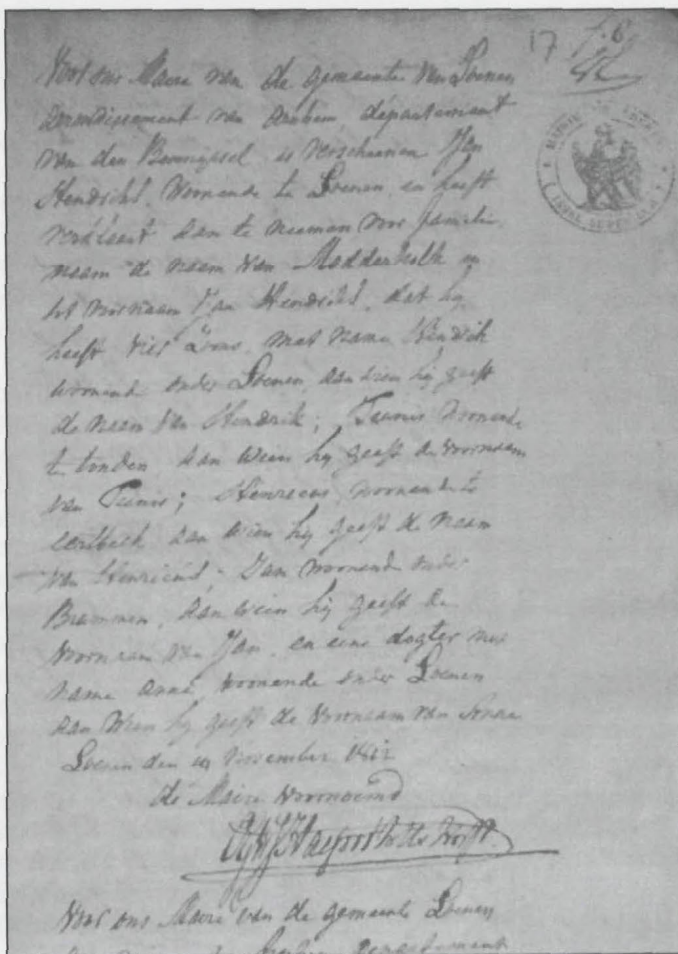 17
Voor ons Maire van de gemeente van Loenen
arrondissement van Arnhem departement
van den Bovenijssel is verscheenen Jan
Hendriks, woonende te Loenen en heeft
verklaart aan te neemen voor familie
naam de naam van Modderkolk en
tot voornaam Jan Hendriks, dat hij
heeft vier Zoons, met name Hendrik
woonend onder Loenen, aan wien hij geeft
de naam van Hendrik; Teunis woonende
te tonden aan wien hij geeft de voornaam
van Tunis; Henricus, woonende te
eerbeek aan wien hij geeft de naam
van Henricus; Jan woonende onder
Brummen, aan wien hij geeft de
voornaam van Jan, en eene dogter met
name anna, woonende onder Loenen
aan wien hij geeft de voornaam van
Loenen den november 1812
de Maire voornoemd
Hacfort
Voor ons Maire van de gemeente Loenen
Arnhem departement